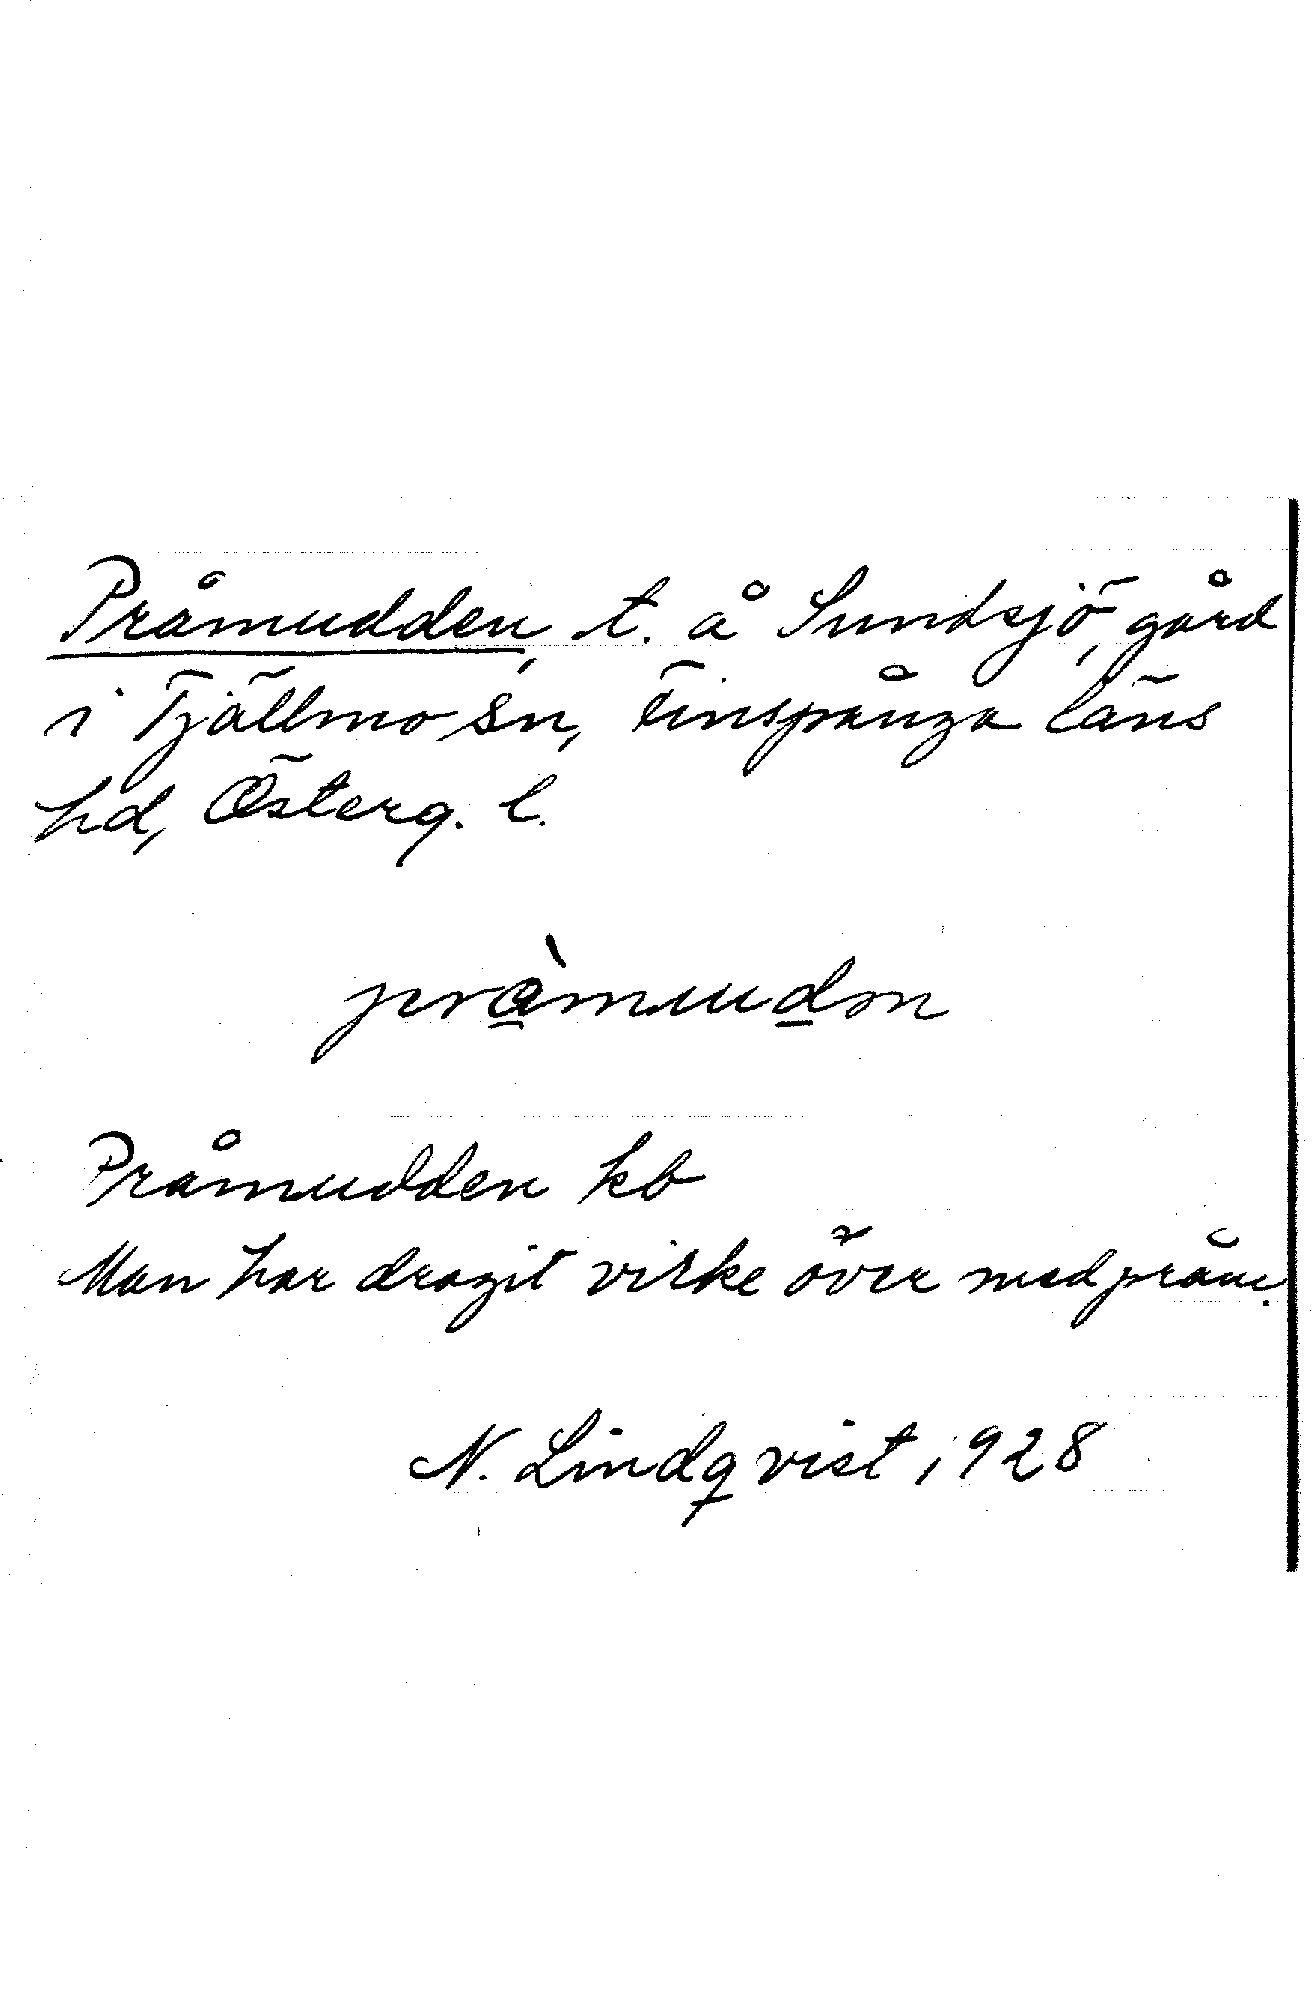 Pråmudden, t. å Sundsjö, gård
i Tjällmo sn, Finspånga läns
hd, Österg. l.
pràmudn
Pråmudden kb
Man har dragit virke över med pråm.
N. Lindqvist, 1928